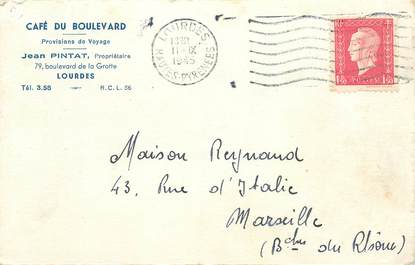 CAFÉ DU BOULEVARD
Provisions de Voyage
Jean PINTAT, Propriétaire
79, boulevard de la Grotte
LOURDES
Tél. 3.58 R.C.L. 56
LOURDES
II-IX
1945
HAUTES-PYRENEES
Maison Reynaud
43, Rue d'Italie
Marseille
(Bches du Rhône)